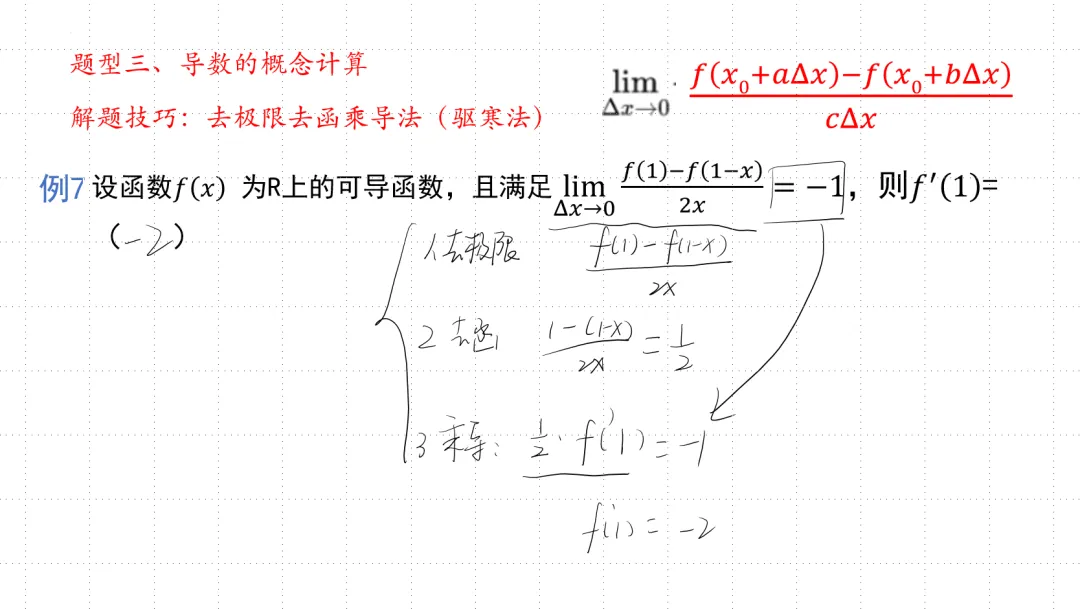 题型三、导数的概念计算
解题技巧：去极限去函乘导法（驱寒法）
lim Δx→0 f(x₀+aΔx)−f(x₀+bΔx) / cΔx
例7 设函数f(x) 为R上的可导函数，且满足 lim Δx→0 f(1)−f(1−x) / 2x = −1，则f′(1)=
（-2）
1 去极限 f(1)-f(1-x) / 2x
2 去函 1-(1-x) / 2x = 1/2
3 乘导: 1/2 · f'(1) = -1
f'(1) = -2